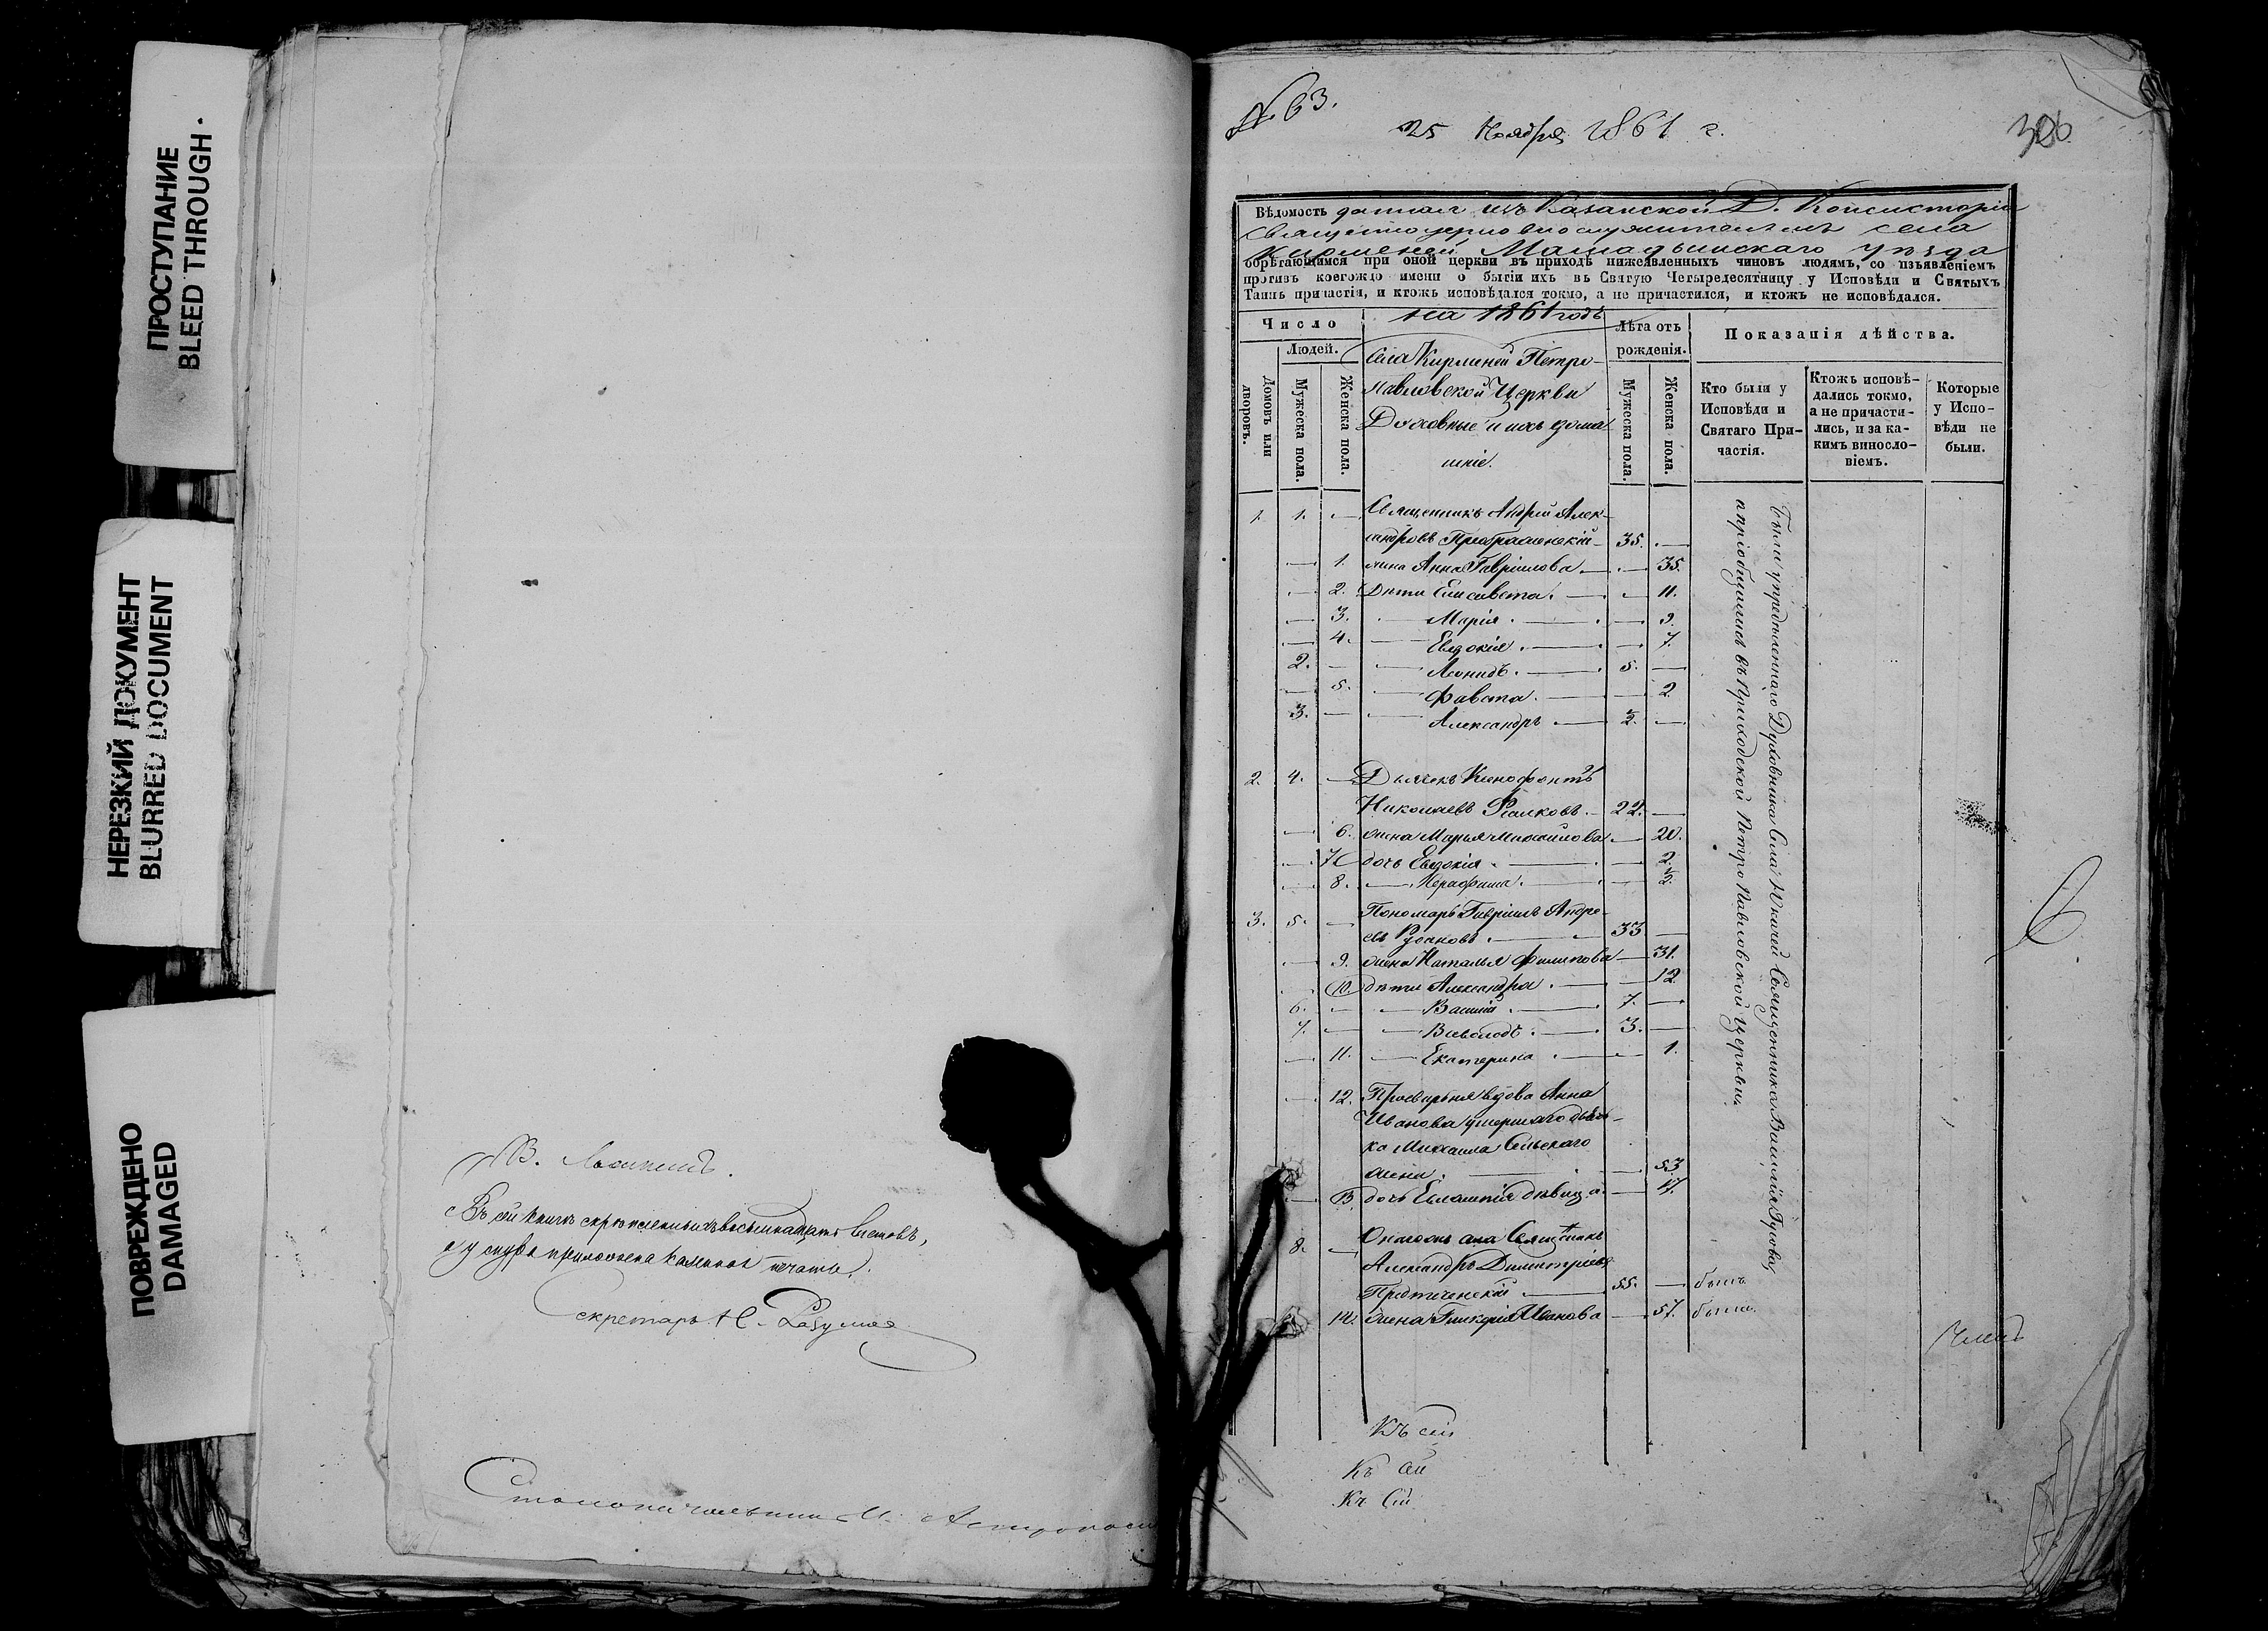 ПРОСТУПАНИЕ
BLEED THROUGH
НЕРЕЗКИЙ ДОКУМЕНТ
BLURRED DOCUMENT
ПОВРЕЖДЕНО
DAMAGED
Въ сей книгѣ скрѣпленныхъ восемнадцать листовъ,
а у шнура приложена казенная печать.
Секретарь Н.
Столоначальникъ М.
№ 63.
25 Ноября 1861 г.
326
Вѣдомость данная изъ Казанской Д. Консисторіи
Священноцерковнослужителямъ села
Кирменей Мамадышскаго уѣзда
обрѣтающимся при оной церкви въ приходѣ нижеявленныхъ чиновъ людямъ, со изъявленіемъ
противъ коегождо имени о бытіи ихъ въ Святую Четыредесятницу у Исповѣди и Святыхъ
Таинъ причастія, и ктожъ исповѣдался токмо, а не причастился, и ктожъ не исповѣдался.
на 1861 годъ
Число
Людей.
Домовъ или дворовъ.
Мужеска пола.
Женска пола.
Села Кирменей Петро-
павловской Церкви
Духовные и ихъ домаш-
ніе.
Лѣта отъ
рожденія.
Мужеска пола.
Женска пола.
Показанія дѣйства.
Кто были у
Исповѣди и
Святаго При-
частія.
Ктожъ исповѣ-
дались токмо,
а не причасти-
лись, и за ка-
кимъ виносло-
віемъ.
Которые
у Испо-
вѣди не
были.
1. 1. — Священникъ Андрей Алек-
сандровъ Преображенскій — 35. —
— 1. жена Анна Гаврилова — — 35.
— 2. Дѣти Елисавета. — — 11.
— 3. — Марія. — — 9.
— 4. — Евдокія. — — 7.
2. — — Леонидъ. — 5. —
— 5. — Фавста. — — 2.
3. — — Александръ — ½. —
2. 4. — Дьячекъ Ксенофонтъ
Николаевъ — 22. —
— 6. жена Марья Михайлова — 20.
— 7. дочь Евдокія. — — 2.
— 8. — Серафима. — — ½.
3. 5. — Пономарь Гавріилъ Андре-
евъ — 33 —
— 9. жена Наталья Филипова — 31.
— 10. дѣти Александра. — — 12.
6. — — Василій. — 7. —
7. — — Всеволодъ. — 3. —
— 11. — Екатерина. — — 1.
— 12. Просвирня вдова Анна
Иванова умершаго дьяч-
ка Михаила Сельскаго
жена. — — 53.
— 13. дочь дѣвица — 17.
8. —
Александръ Димитріевъ
Предтеченскій — 55. — былъ
14. жена Гликерія Иванова — 57. была.
Были у предписаннаго Духовника Села Священника Василія Гусева,
и пріобщались въ Приходской Петропавловской Церкви.
Членъ
Къ сей
Къ сей
Къ сей